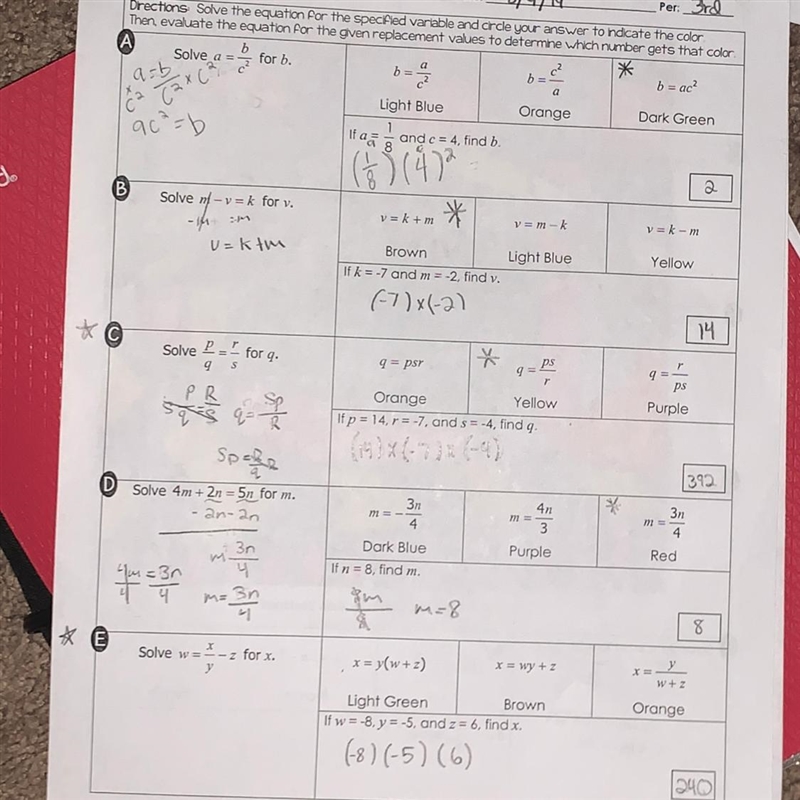 Per: 3rd
Directions: Solve the equation for the specified variable and circle your answer to indicate the color.
Then, evaluate the equation for the given replacement values to determine which number gets that color.
A
Solve a = b/c² for b.
a = b/c² × c²
× c²
ac² = b
b = a/c²
Light Blue
b = c²/a
Orange
* b = ac²
Dark Green
If a = 1/8 and c = 4, find b.
a c
(1/8)(4)²
2
B
Solve m − v = k for v.
-m =m
v = k+m
v = k + m *
Brown
v = m − k
Light Blue
v = k − m
Yellow
If k = -7 and m = -2, find v.
(-7)×(-2)
14
C
Solve p/q = r/s for q.
P/q = R/S
q = Sp/R
Sp = R/q R
q = psr
Orange
* q = ps/r
Yellow
q = r/ps
Purple
If p = 14, r = -7, and s = -4, find q.
(14)×(-7)×(-4)
392
D
Solve 4m + 2n = 5n for m.
-2n -2n
4m/4 = 3n/4
m 3n/4
m = 3n/4
m = − 3n/4
Dark Blue
m = 4n/3
Purple
* m = 3n/4
Red
If n = 8, find m.
m=8
8
E
Solve w = x/y − z for x.
x = y(w + z)
Light Green
x = wy + z
Brown
x = y/w + z
Orange
If w = -8, y = -5, and z = 6, find x.
(-8)(-5)(6)
240